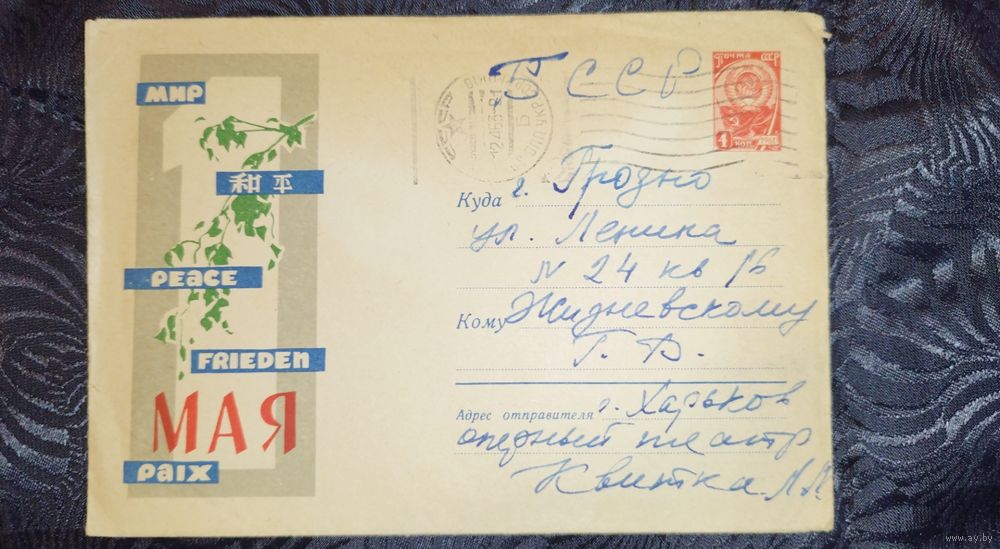 МИР
和平
PEACE
FRIEDEN
МАЯ
PAIX
1
БССР
ПОЧТА СССР
4 КОП.
12463-21
Б
Куда г. Гродно
ул. Ленина
N 24 кв 16
Кому Жидневскому
Г. В.
Адрес отправителя г. Харьков
оперный театр
Квитка Л.М.
www.ay.by